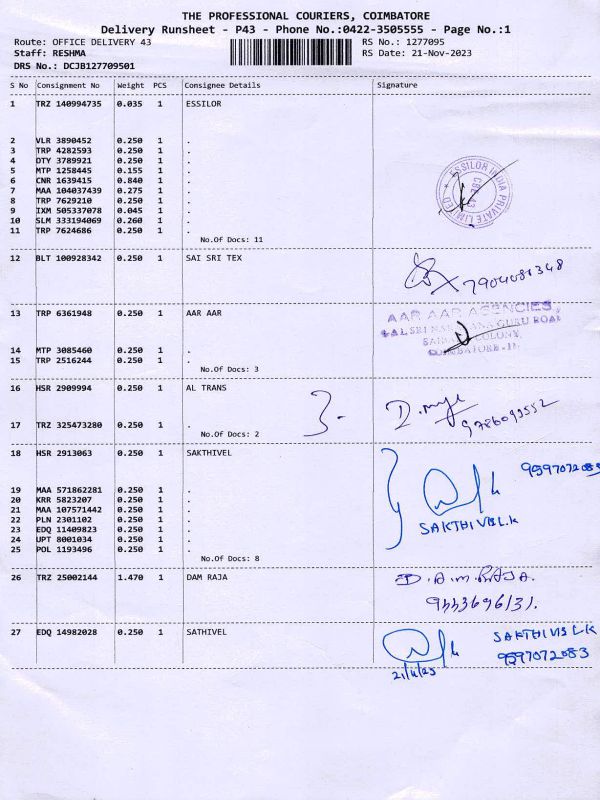 THE PROFESSIONAL COURIERS, COIMBATORE
Delivery Runsheet - P43 - Phone No.:0422-3505555 - Page No.:1
Route: OFFICE DELIVERY 43 RS No.: 1277095
Staff: RESHMA RS Date: 21-Nov-2023
DRS No.: DCJB127709501
S No Consignment No Weight PCS Consignee Details Signature
1 TRZ 140994735 0.035 1 ESSILOR
2 VLR 3890452 0.250 1 .
3 TRP 4282593 0.250 1 .
4 DTY 3789921 0.250 1 .
5 MTP 1258445 0.155 1 .
6 CNR 1639415 0.840 1 .
7 MAA 104037439 0.275 1 .
8 TRP 7629210 0.250 1 .
9 IXM 505337078 0.045 1 .
10 SLM 333194069 0.260 1 .
11 TRP 7624686 0.250 1 .
ESSILOR INDIA PRIVATE LIMITED
CBE-43
No.Of Docs: 11
12 BLT 100928342 0.250 1 SAI SRI TEX
7904081348
13 TRP 6361948 0.250 1 AAR AAR
AAR AAR AGENCIES,
COLONY,
14 MTP 3085460 0.250 1 .
15 TRP 2516244 0.250 1 .
No.Of Docs: 3
16 HSR 2909994 0.250 1 AL TRANS
9786099552
17 TRZ 325473280 0.250 1 .
No.Of Docs: 2
18 HSR 2913063 0.250 1 SAKTHIVEL
9597072083
19 MAA 571862281 0.250 1 .
20 KRR 5823207 0.250 1 .
21 MAA 107571442 0.250 1 .
22 PLN 2301102 0.250 1 .
23 EDQ 11409823 0.250 1 .
24 UPT 8001034 0.250 1 .
25 POL 1193496 0.250 1 .
SAKTHIVEL.K
No.Of Docs: 8
26 TRZ 25002144 1.470 1 DAM RAJA
D.A.M.RAJA.
9443696131.
27 EDQ 14982028 0.250 1 SATHIVEL
SAKTHIVEL.K
9597072083
21/11/23